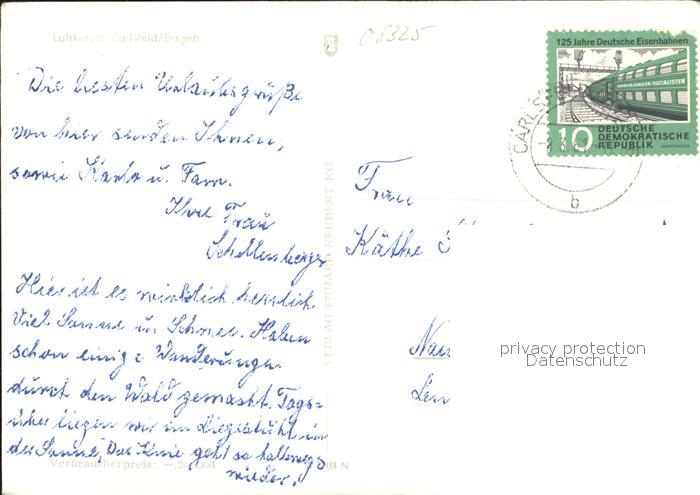 Luftkurort Carlsfeld/Erzgeb.
08325
125 Jahre Deutsche Eisenbahnen
10 DEUTSCHE
DEMOKRATISCHE
REPUBLIK
CARLSFE
b
Die besten Urlaubsgrüße
von hier senden Ihnen,
sowie Karlo u. Fam.
Ihre Frau
Schellenberger
Hier ist es wirklich herrlich.
Viel Sonne u. Schnee. Haben
schon einige Wanderungen
durch den Wald gemacht. Tags=
über liegen wir im Liegestuhl in
der Sonne. Das Knie geht so halbwegs
wieder.
Frau
Käthe
VERLAG ERHARD NEUBERT KG
privacy protection
Datenschutz
Verbraucherpreis: —,20 DM
03 N